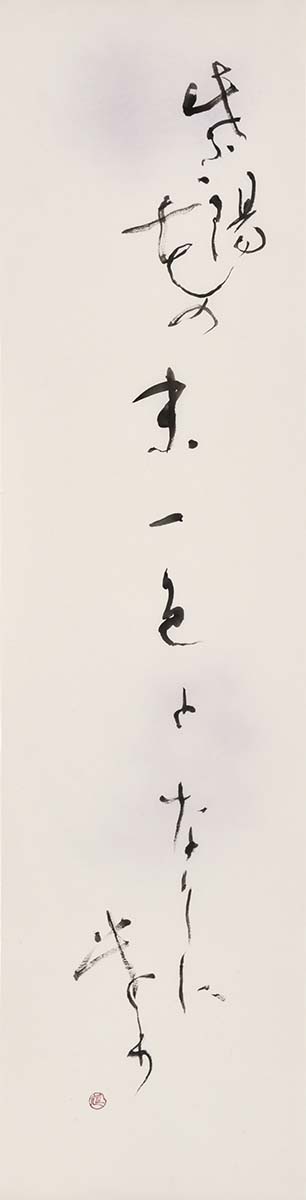 紫陽花の末一色となりに
けり